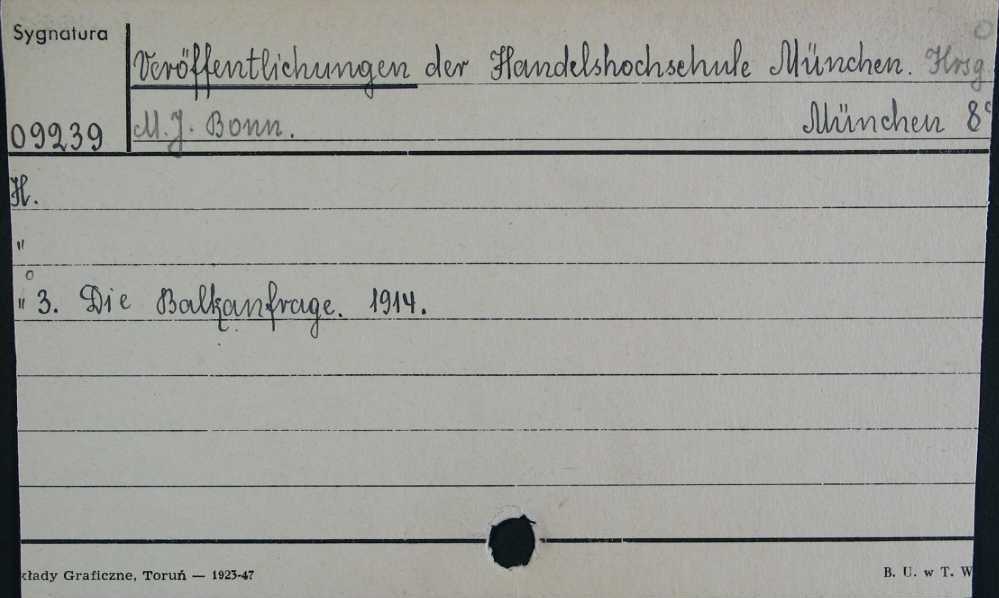 Sygnatura
Veröffentlichungen der Handelshochschule München. Hrsg.
09239 M. J. Bonn. München 8°
H.
"
" 3. Die Balkanfrage. 1914.
kłady Graficzne, Toruń — 1923-47 B. U. w T. W